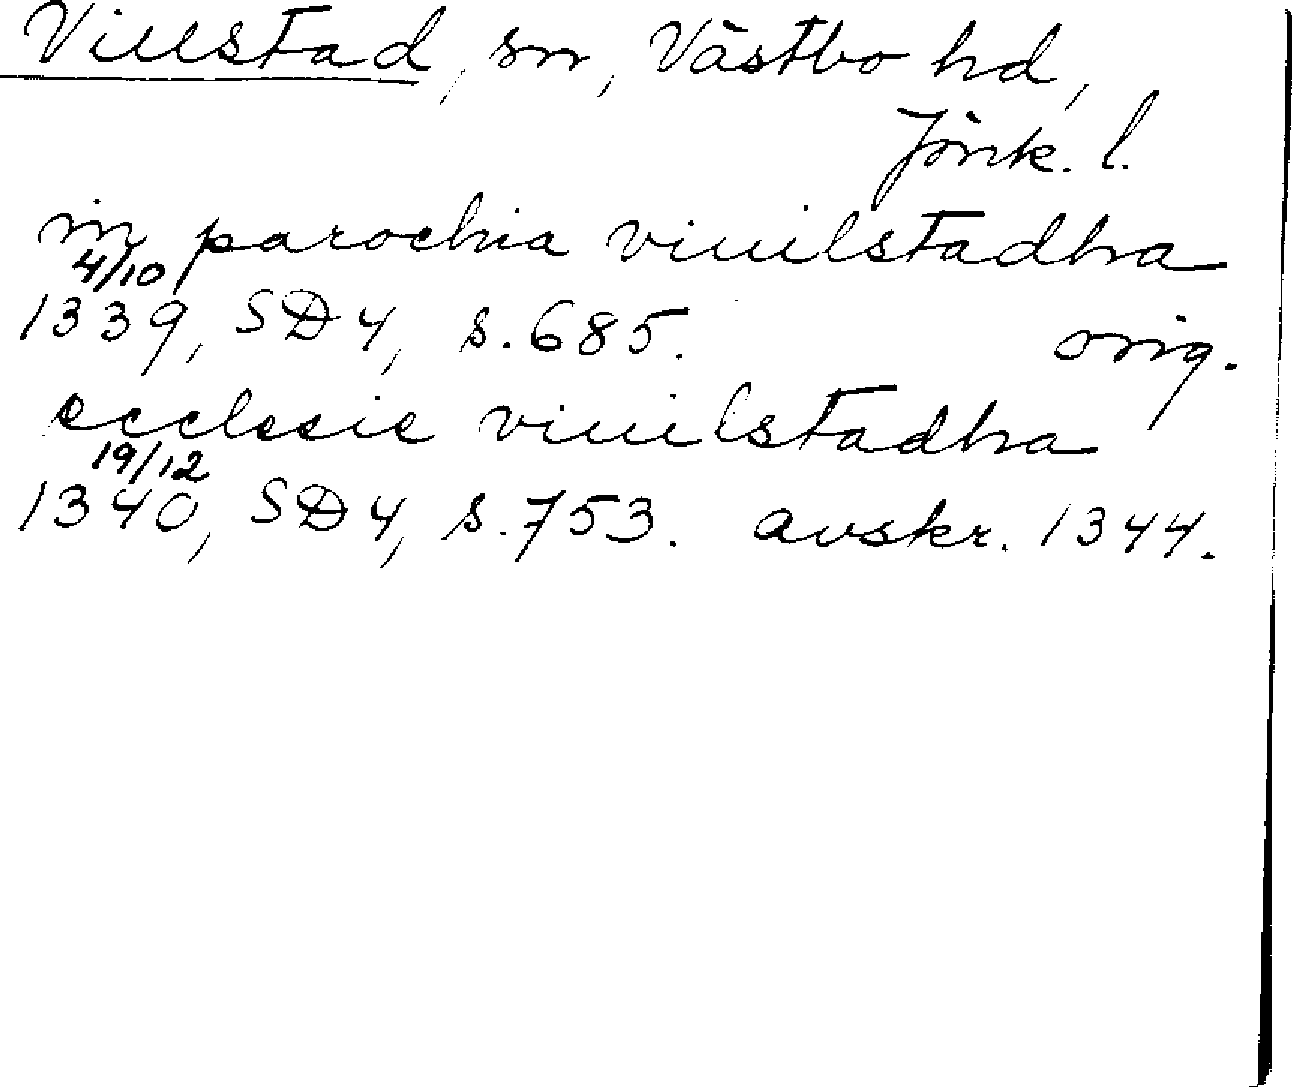 Villstad, sn, Västbo hd,
Jönk. l.
in parochia viuilstadha
4/10
1339, SD 4, s. 685. orig.
ecclesie viuilstadha
19/12
1340, SD 4, s. 753. avskr. 1344.